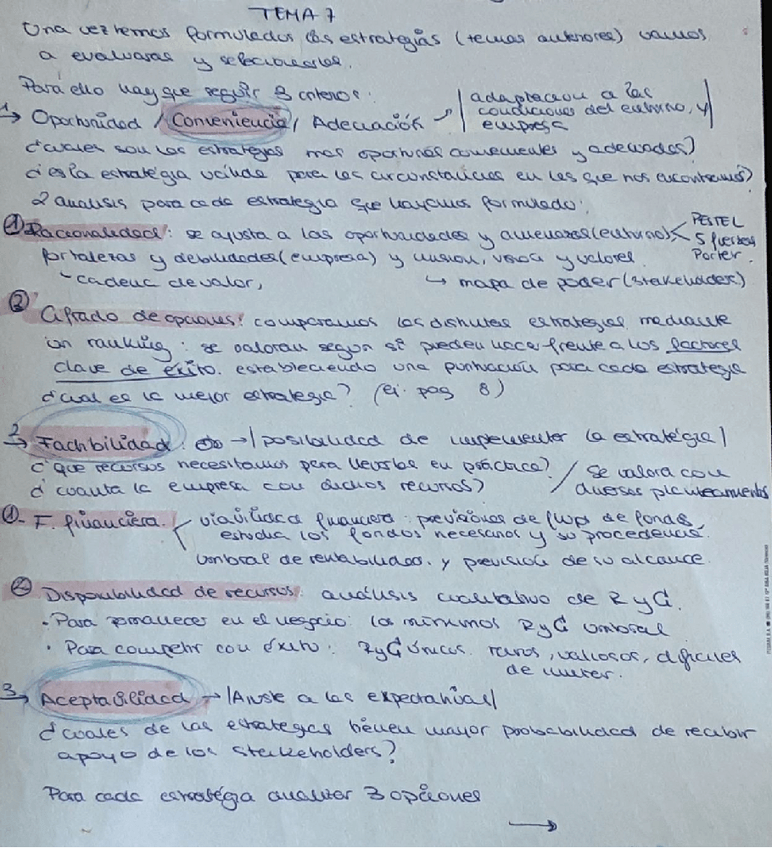 TEMA 7
Una vez hemos formulados las estrategias (temas anteriores) vamos
a evaluarlas y seleccionarlas.
Para ello hay que seguir 3 criterios:
1 → Oportunidad / Conveniencia / Adecuación → | adaptacion a las condiciones del entorno, y empresa |
¿cuales son las estrategias mas oportunas convenientes y adecuadas?
¿es la estratégia válida para las circunstancias en las que nos encontramos?
2 analisis para cada estrategia que hayamos formulado:
① Racionalidad: se ajusta a las oportunidades y amenazas (entorno) < PESTEL 5 fuerzas Porter.
fortalezas y debilidades (empresa) y mision, vision y valores
cadena de valor, → mapa de poder (stakeholders)
② Cifrado de opciones: comparamos las distintas estrategias mediante
un ranking: se valoran segun si pueden hacer frente a los factores
clave de éxito. estableciendo una puntuación para cada estrategia
¿cual es la mejor estrategia? (ej. pag 8)
2 → Factibilidad: → | posibilidad de implementar la estratégia |
¿que recursos necesitamos para llevarlas en práctica?
¿cuenta la empresa con dichos recursos? / se valora con diversos planteamientos
①. F. financiera. < viabilidad financiera: previsiones de flujos de fondos,
estudia los fondos necesarios y su procedencia.
umbral de rentabilidad. y prevision de su alcance.
② Disponibilidad de recursos: análisis cualitativo de R y C.
· Para permanecer en el negocio: los mínimos R y C umbral
· Para competir con éxito: R y C únicas. raros, valiosos, dificiles
de imitar.
3 → Aceptabilidad → | Ajuste a las expectativas |
¿cuales de las estrategias tienen mayor probabilidad de recibir
apoyo de los stakeholders?
Para cada estratégia analizar 3 opciones
→